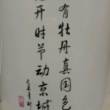 有牡丹真国色
开时节动京城